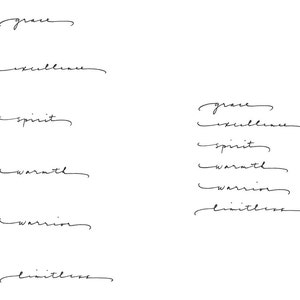 grace
excellence
spirit
warmth
warrior
limitless
grace
excellence
spirit
warmth
warrior
limitless